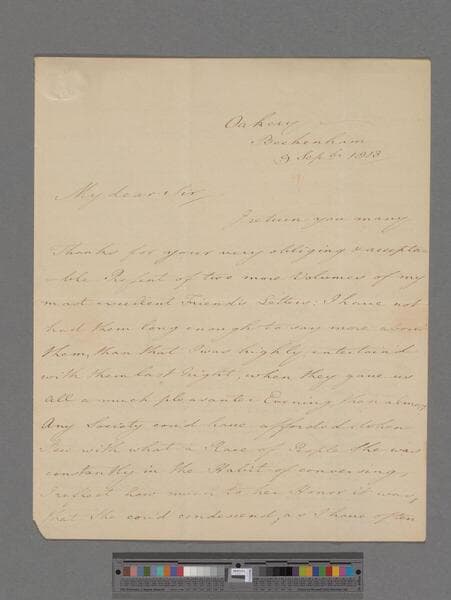 Oakery
Beckenham
9 Sepbr 1813
My dear Sir,
I return you many
Thanks for your very obliging & accepta-
-ble Present of two more Volumes of my
most excellent Friend's Letters: I have not
had them long enough to say more about
them, than that I was highly entertain'd
with them last Night, when they gave us
all a much pleasanter Evening than almost
Any Society could have afforded. When
I see with what a Race of People She was
constantly in the Habit of conversing,
I reflect how much to her Honor it was,
that She cou'd condescend, as I have often